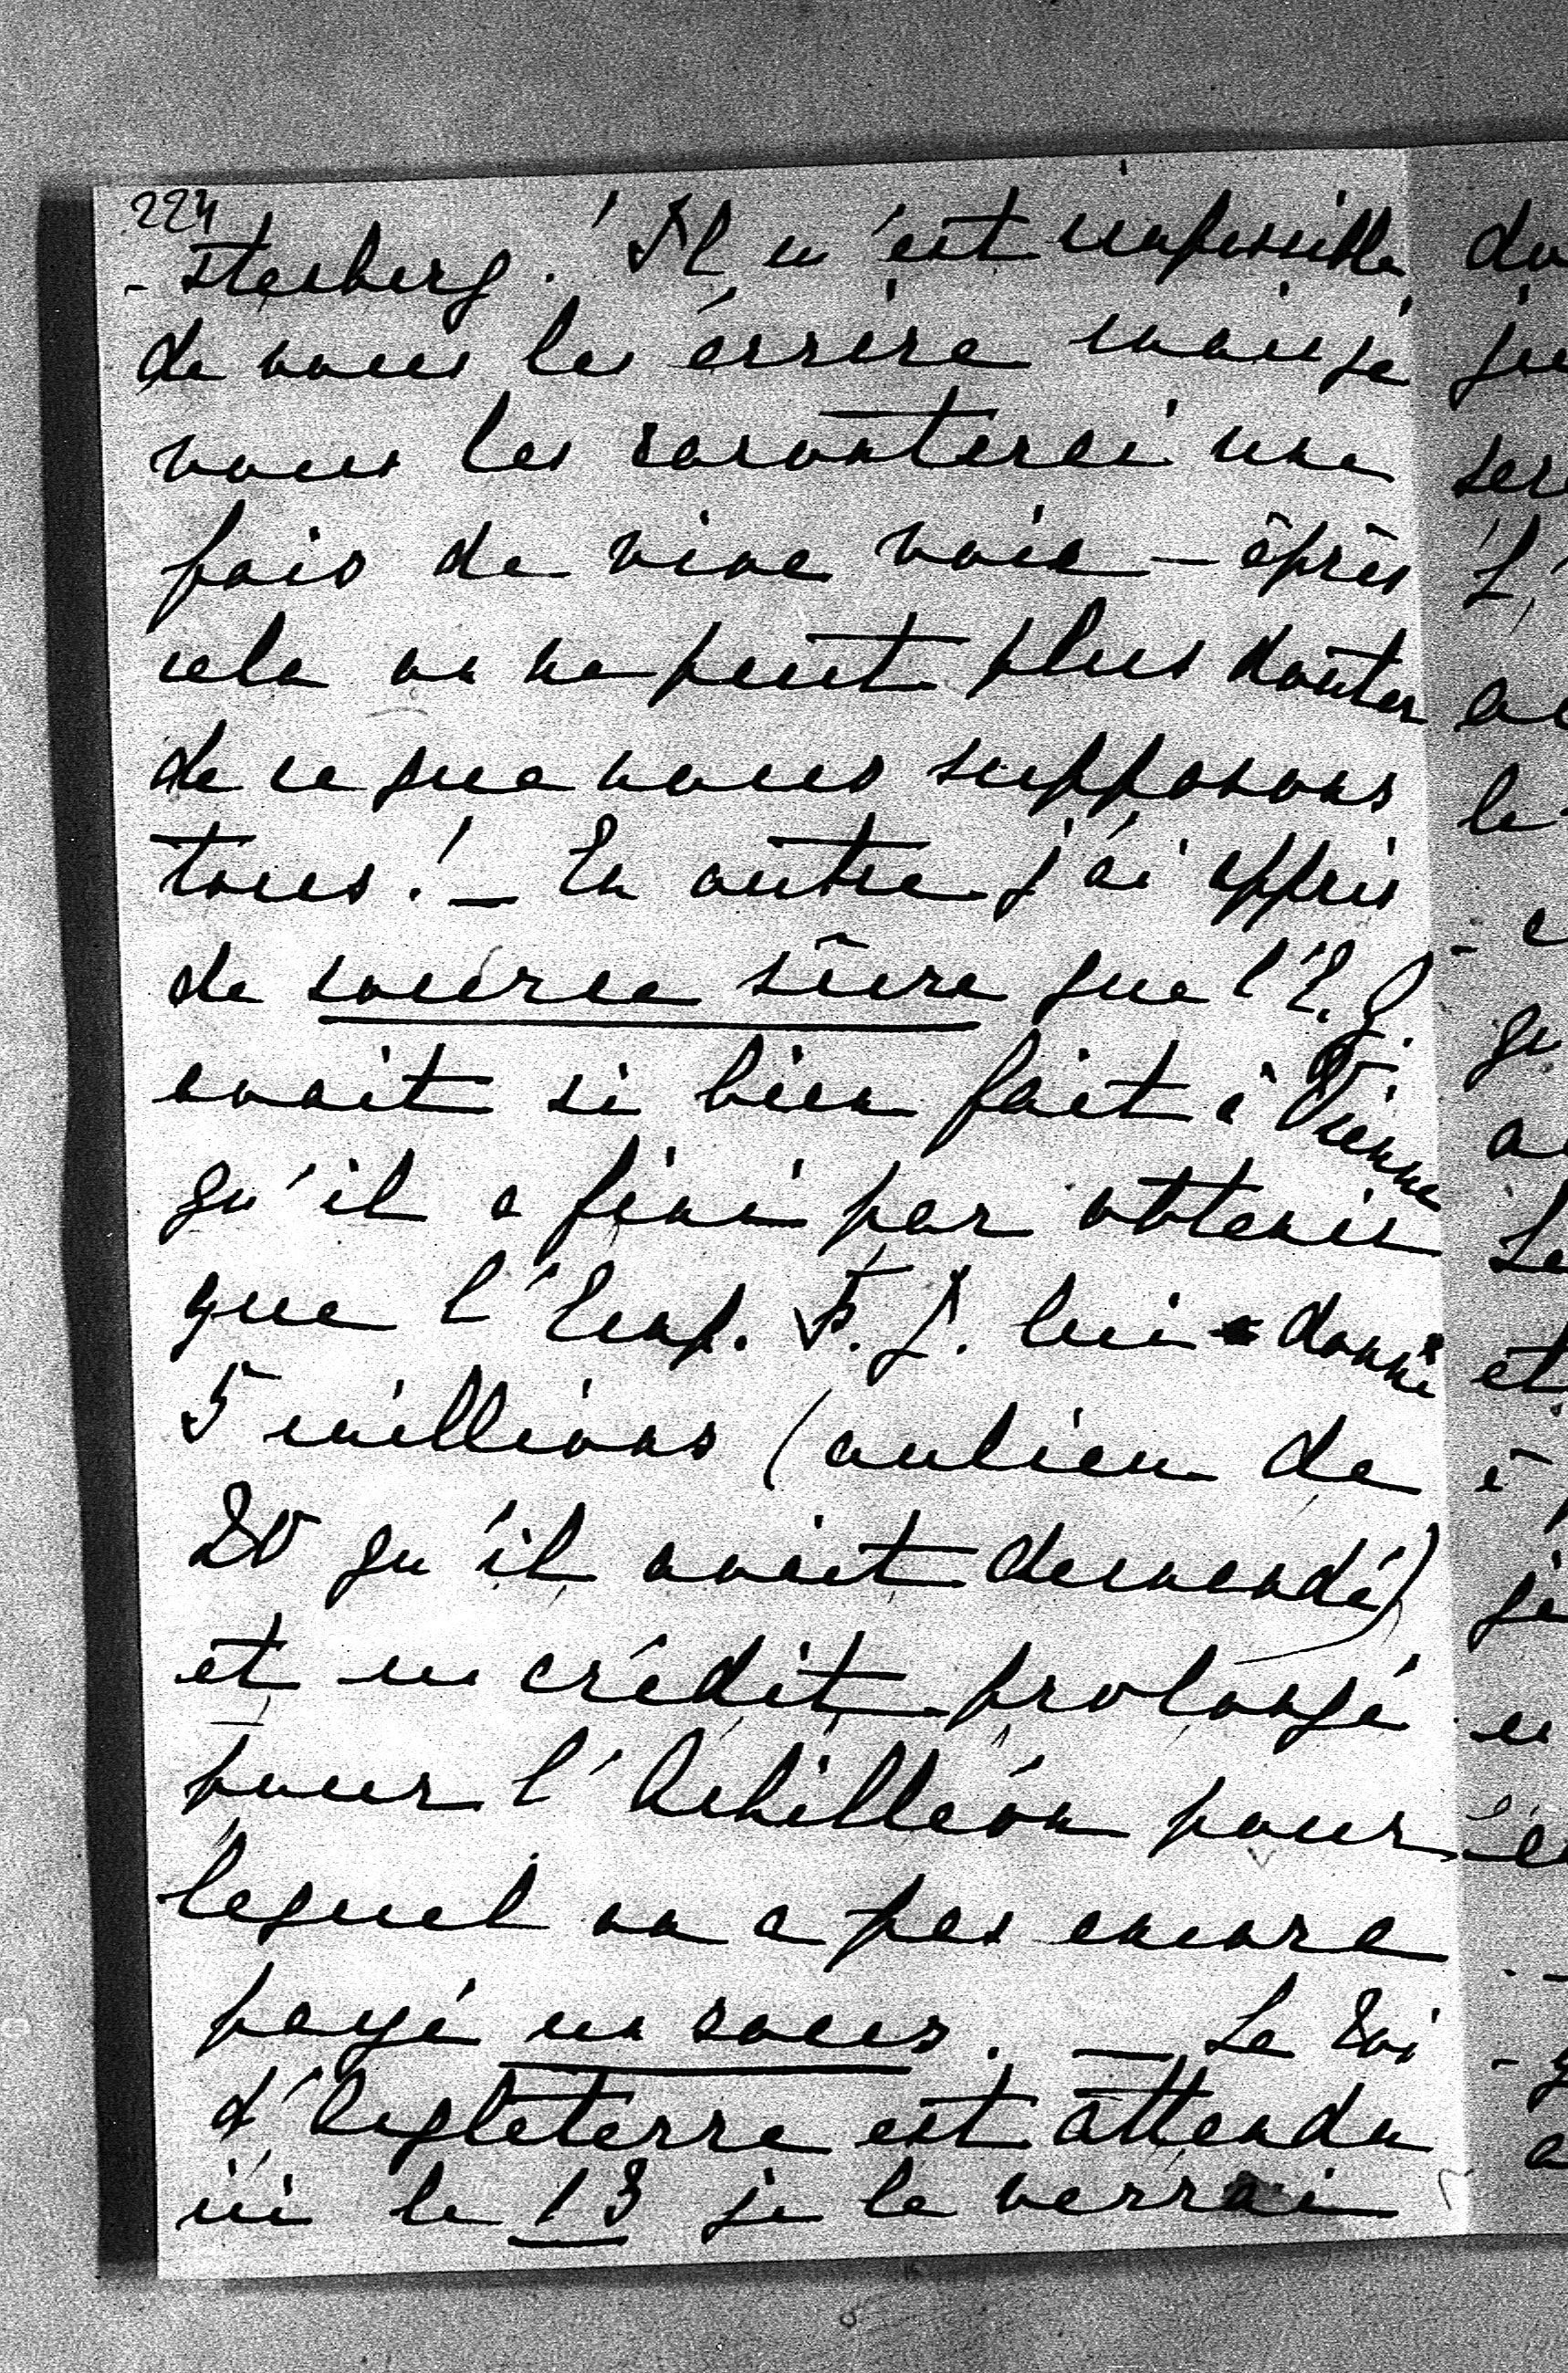 224
- sterberg. Il m'est impossible
de vous les écrire mais je
vous les raconterai une
fois de vive voix — après
cela on ne peut plus douter
de ce que nous supposons
tous! — En outre j'ai appris
de source sûre que l'E. G.
avait si bien fait à Vienne
qu'il a fini par obtenir
que l'Emp. F. J. lui donne
5 millions (aulieu de
20 qu'il avait demandé)
et un crédit prolongé
pour l'Achilléon pour
lequel on a pas encore
payé un sous. — Le Roi
d'Angleterre est attendu
ici le 13 je le verrai